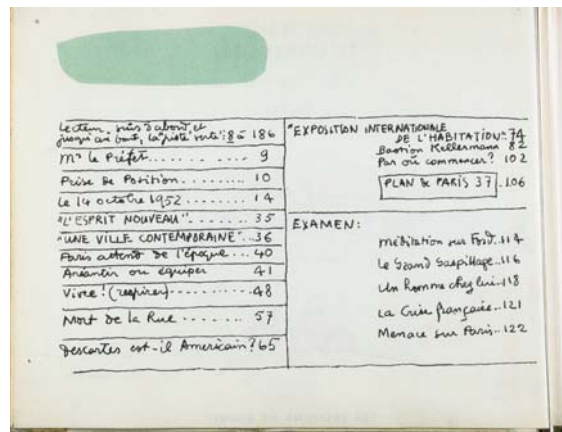 Lecteur, suis d'abord, et
jusqu'au bout, la "piste verte": 8 à 186
Mr le Préfet . . . . . . . . . . . 9
Prise de Position . . . . . . . . . . 10
Le 14 octobre 1952 . . . . . . . 14
"L'ESPRIT NOUVEAU" . . . . . . . . 35
"UNE VILLE CONTEMPORAINE" . . 36
Paris attend de l'époque . . . 40
Anéantir ou équiper 41
Vivre! (respirer) . . . . . . . . . . . 48
Mort de la Rue . . . . . . 57
Descartes est-il Américain? 65
"EXPOSITION INTERNATIONALE
DE L'HABITATION": 74
Bastion Kellermann 82
Par où commencer? 102
PLAN de PARIS 37 . 106
EXAMEN:
Méditation sur Ford . . 114
Le Grand Gaspillage . . 116
Un Homme chez lui . . 118
La Crise française . . 121
Menace sur Paris . . 122